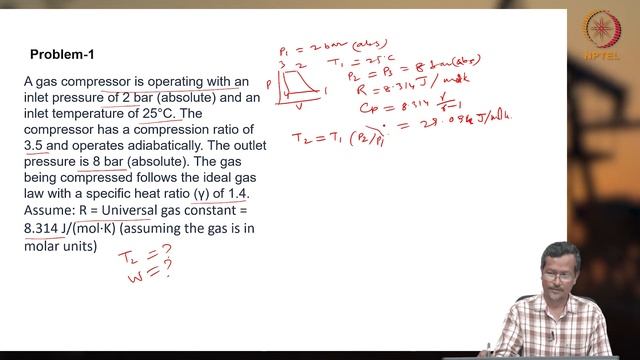 Problem-1
A gas compressor is operating with an
inlet pressure of 2 bar (absolute) and an
inlet temperature of 25°C. The
compressor has a compression ratio of
3.5 and operates adiabatically. The outlet
pressure is 8 bar (absolute). The gas
being compressed follows the ideal gas
law with a specific heat ratio (γ) of 1.4.
Assume: R = Universal gas constant =
8.314 J/(mol·K) (assuming the gas is in
molar units)
T2 = ?
W = ?
P1 = 2 bar (abs)
T1 = 25°C
P2 = P3 = 8 bar (abs)
R = 8.314 J/molk
Cp = 8.314 γ/γ-1
= 29.099 J/molk
T2 = T1 (P2/P1
3 2
P
4 1
V
NPTEL